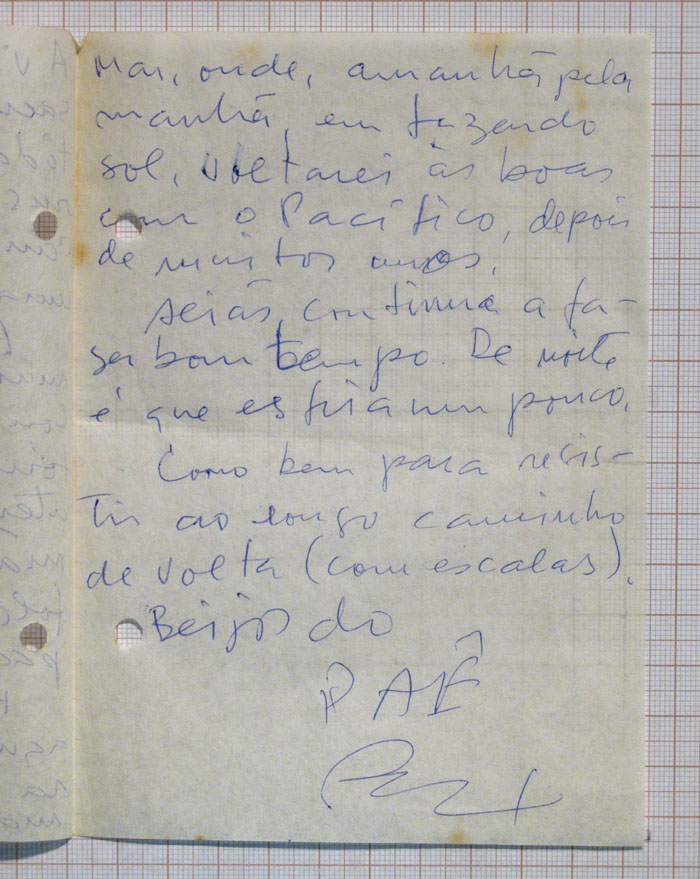 Mar, onde, amanhã pela
manhã, em fazendo
sol, voltarei às boas
com o Pacífico, depois
de muitos anos.
Aliás, continua a fa-
zer bom tempo. De noite
é que esfria um pouco.
Como bem para resis-
tir ao longo caminho
de volta (com escalas).
Beijos do
PAÊ